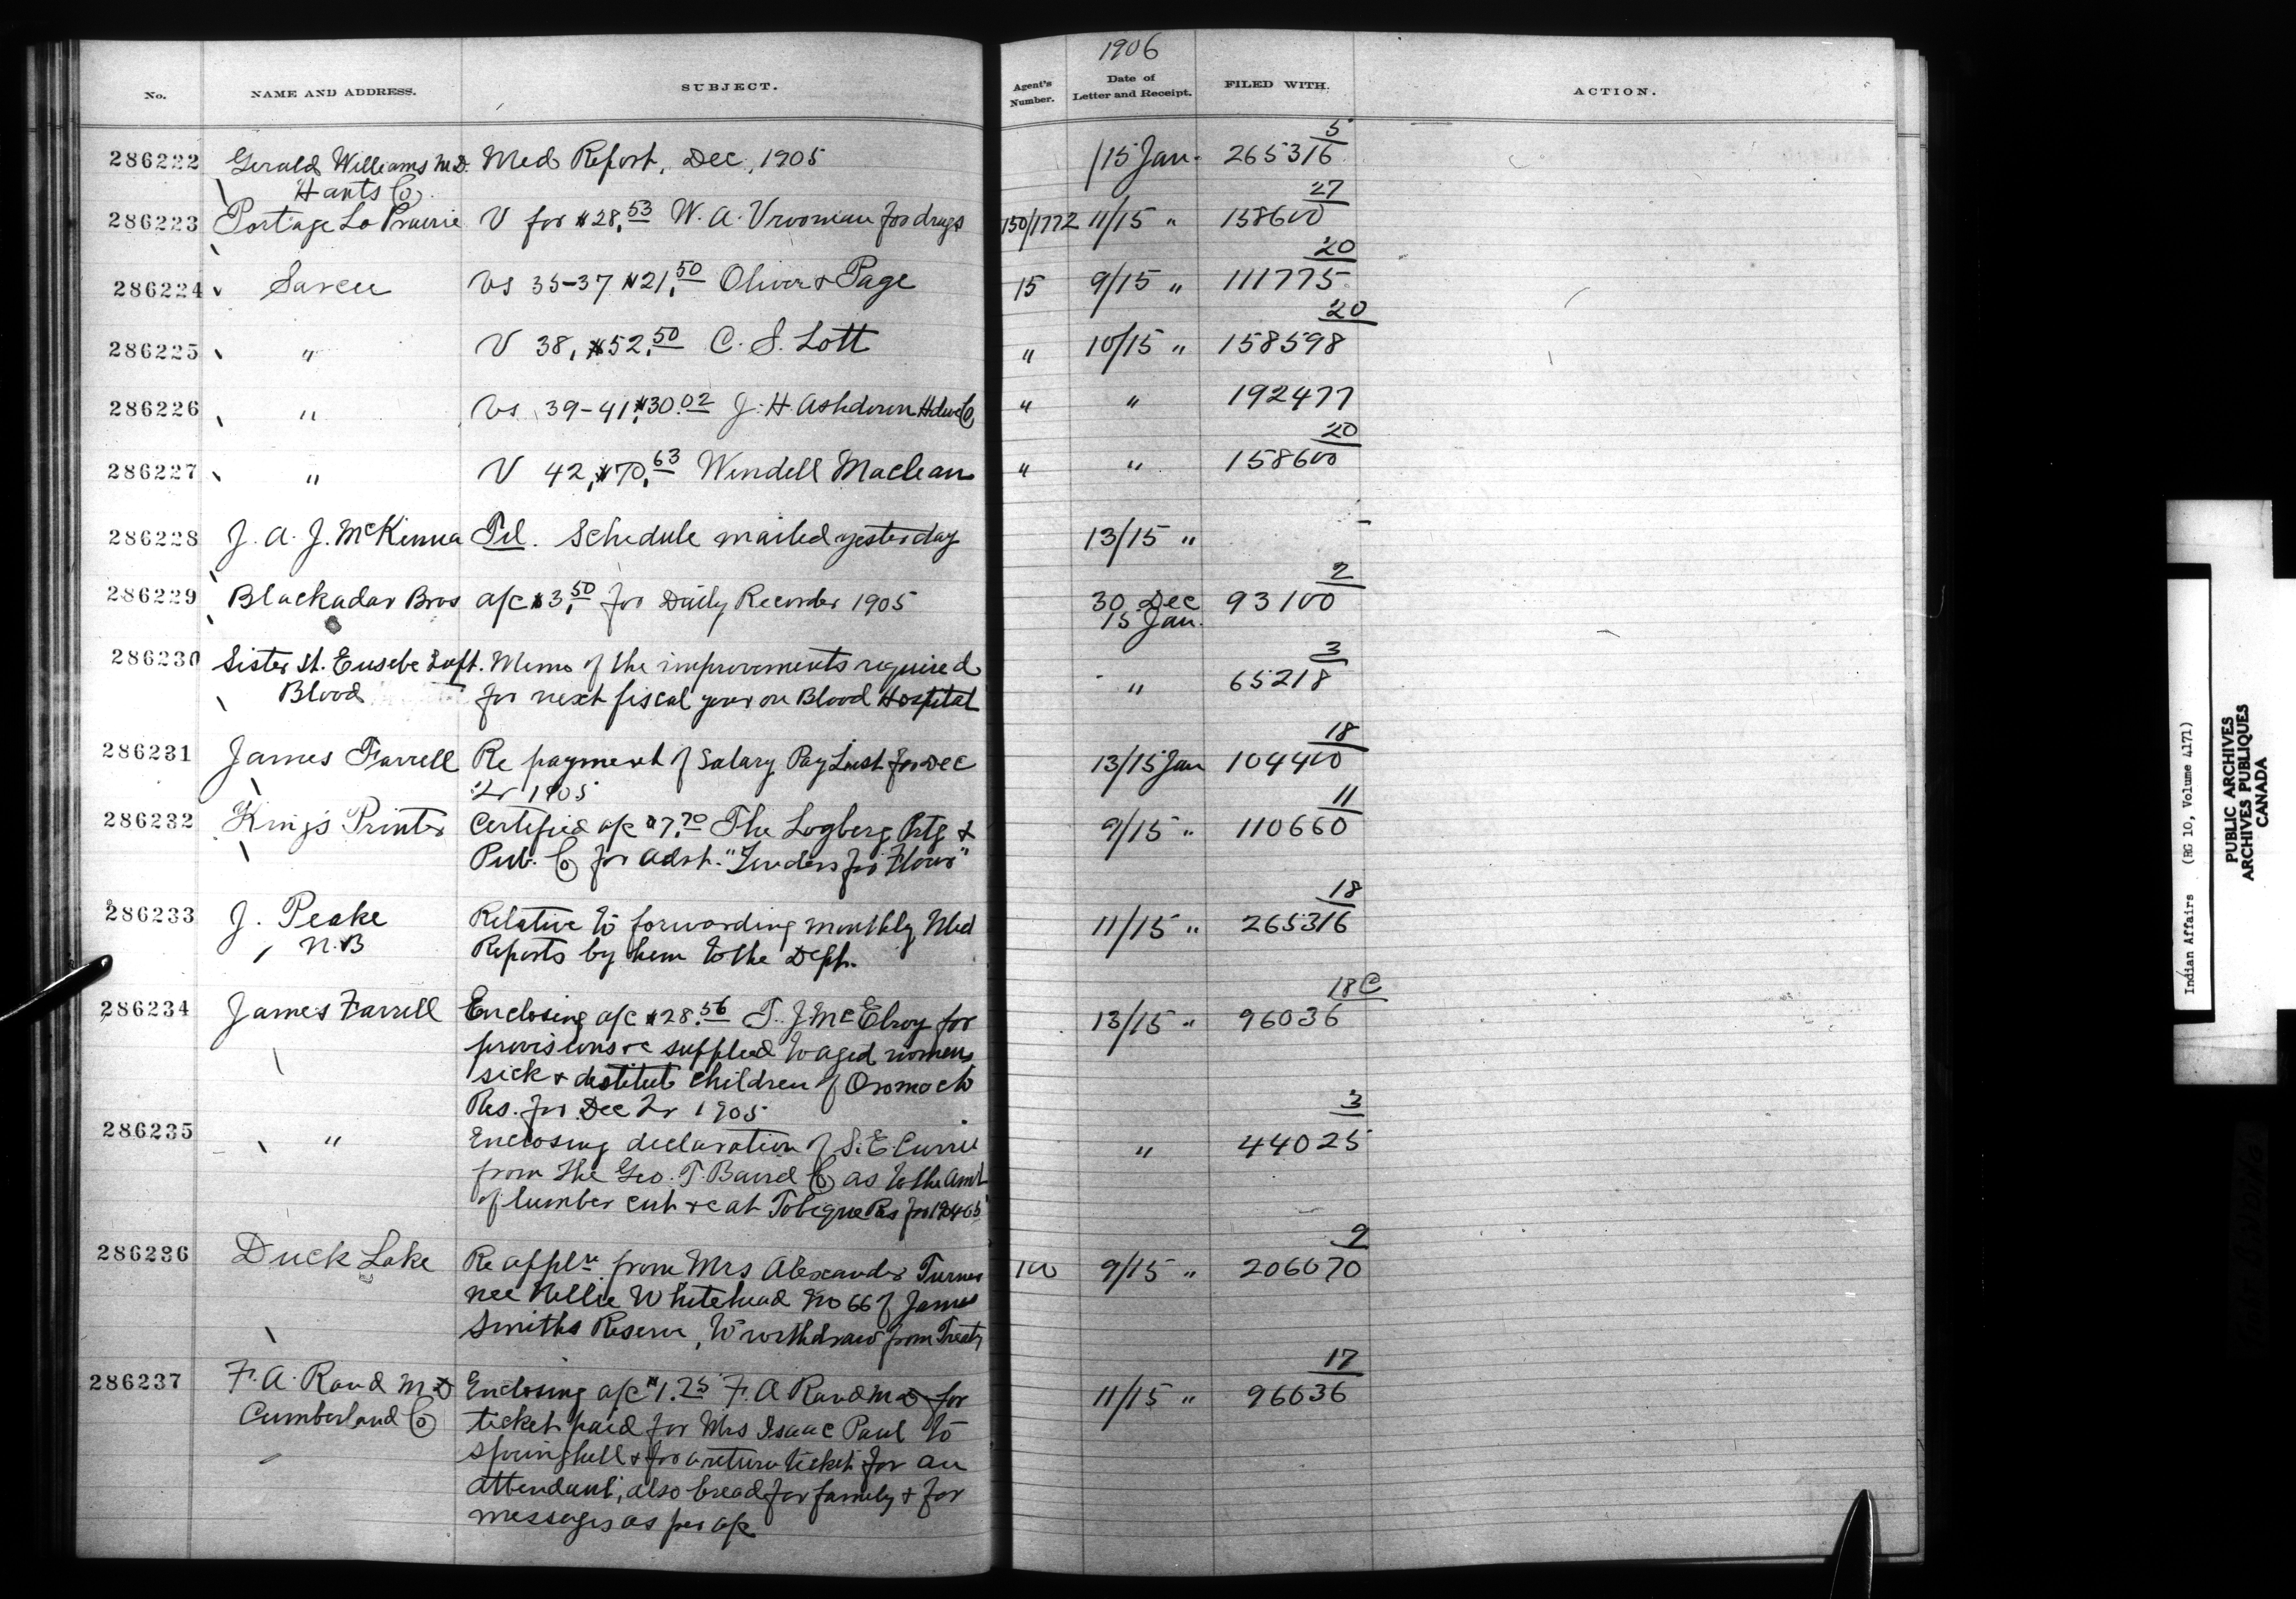 1906
No. NAME AND ADDRESS. SUBJECT. Agent's Number. Date of Letter and Receipt. FILED WITH. ACTION.
5
286222 Gerald Williams M.D. Med Report, Dec, 1905 /15 Jan. 265316
Hants Co.
27
286223 Portage La Prairie V for $28.53 W. A. Vrooman for drugs 150/1772 11/15 " 158600
20
286224 Vs 35-37 $21.50 Oliver & Page 15 9/15 " 111775
20
286225 " V 38, $52.50 C. S. Lott " 10/15 " 158598
286226 " Vs 39-41, $30.02 J. H. Ashdown Hdwe Co " " 192477
20
286227 " V 42, $70.63 Wendell Maclean " " 158600
286228 J. A. J. McKenna Tel. Schedule mailed yesterday 13/15 "
2
286229 Blackadar Bros a/c $3.50 for Daily Recorder 1905 30 Dec 93100
15 Jan.
3
286230 Sister St. Eusebe Supt. Memo of the improvements required " 65218
Blood for next fiscal year on Blood Hospital
18
286231 James Farrell Re payment of Salary Pay List for Dec 13/15 Jan 104400
Qr 1905
11
286232 King's Printer Certified a/c $7.70 The Logberg Prtg & 9/15 " 110660
Pub. Co for Advt. "Tenders for Flour"
18
286233 J. Peake Relative to forwarding monthly Med 11/15 " 265316
N.B Reports by him to the Dept.
18C
286234 James Farrell Enclosing a/c $28.56 T. J McElroy for 13/15 " 96036
provisions &c supplied to aged women,
sick & destitute children of Oromocto
Res. for Dec Qr 1905
3
286235 " Enclosing declaration of S. E. Currie " 44025
from the Geo. T. Baird Co as to the Amt
of lumber cut &c at Tobique Res for
9
286236 Duck Lake Re appln from Mrs Alexander Turner 100 9/15 " 206070
nee Nellie Whitehead No 66 of James
Smiths Reserve, to withdraw from Treaty
17
286237 F. A. Rand M.D Enclosing a/c $1.25 F. A Rand M D for 11/15 " 96036
Cumberland Co ticket paid for Mrs Isaac Paul to
Springhill & for a return ticket for an
attendant, also bread for family & for
messages as per a/c
Indian Affairs (RG 10, Volume 4171)
PUBLIC ARCHIVES
ARCHIVES PUBLIQUES
CANADA